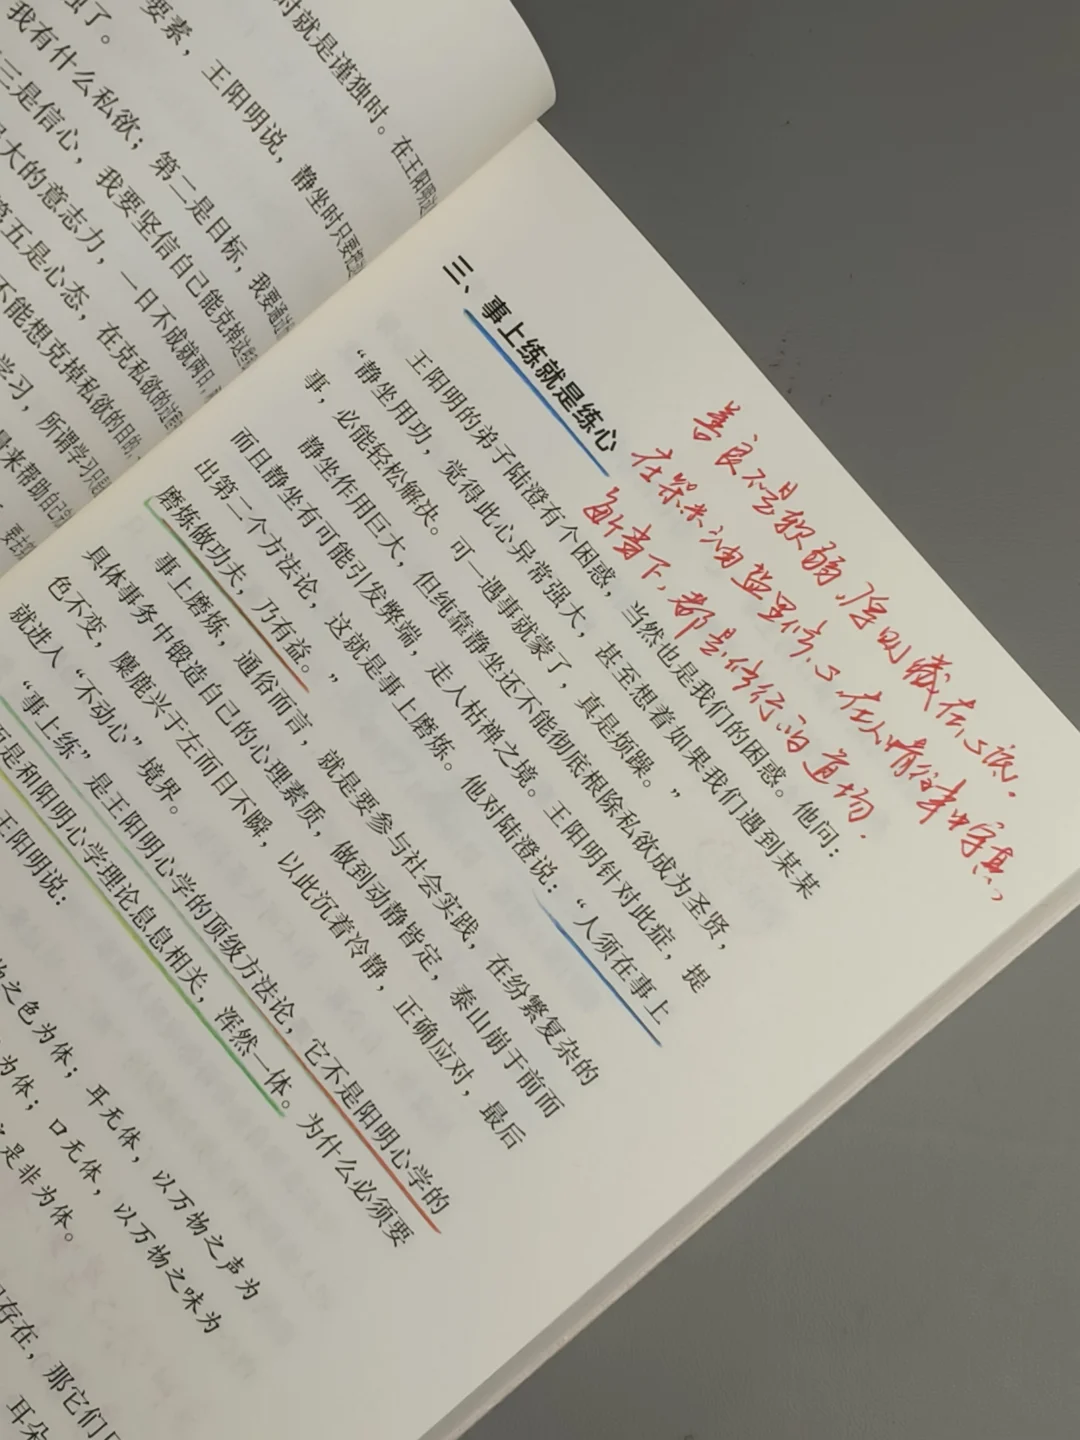 时就是谨独时。在王阳明
要素，王阳明说，静坐时只要把
我有什么私欲；第二是目标，我要通过
三是信心，我要坚信自己能克掉这些
大的意志力，一日不成就两日，
第五是心态，在克私欲的过程
不能想克掉私欲的目的，
学习，所谓学习只是
来帮助自己
三、事上练就是练心
王阳明的弟子陆澄有个困惑，当然也是我们的困惑。他问：
“静坐用功，觉得此心异常强大，甚至想着如果我们遇到某某
事，必能轻松解决。可一遇事就蒙了，真是烦躁。”
静坐作用巨大，但纯靠静坐还不能彻底根除私欲成为圣贤，
而且静坐有可能引发弊端，走入枯禅之境。王阳明针对此症，提
出第二个方法论，这就是事上磨炼。他对陆澄说：“人须在事上
磨炼做功夫，乃有益。”
事上磨炼，通俗而言，就是要参与社会实践，在纷繁复杂的
具体事务中锻造自己的心理素质，做到动静皆定，泰山崩于前而
色不变，麋鹿兴于左而目不瞬，以此沉着冷静，正确应对，最后
就进入“不动心”境界。
“事上练”是王阳明心学的顶级方法论，它不是阳明心学的
而是和阳明心学理论息息相关，浑然一体。为什么必须要
王阳明说：
物之色为体；耳无体，以万物之声为
为体；口无体，以万物之味为
是非为体。
存在，那它们
耳朵
善良不是软弱，原则藏在心底。
在柴米油盐里修心，在人情往来中守真，
每个当下，都是修行的道场。